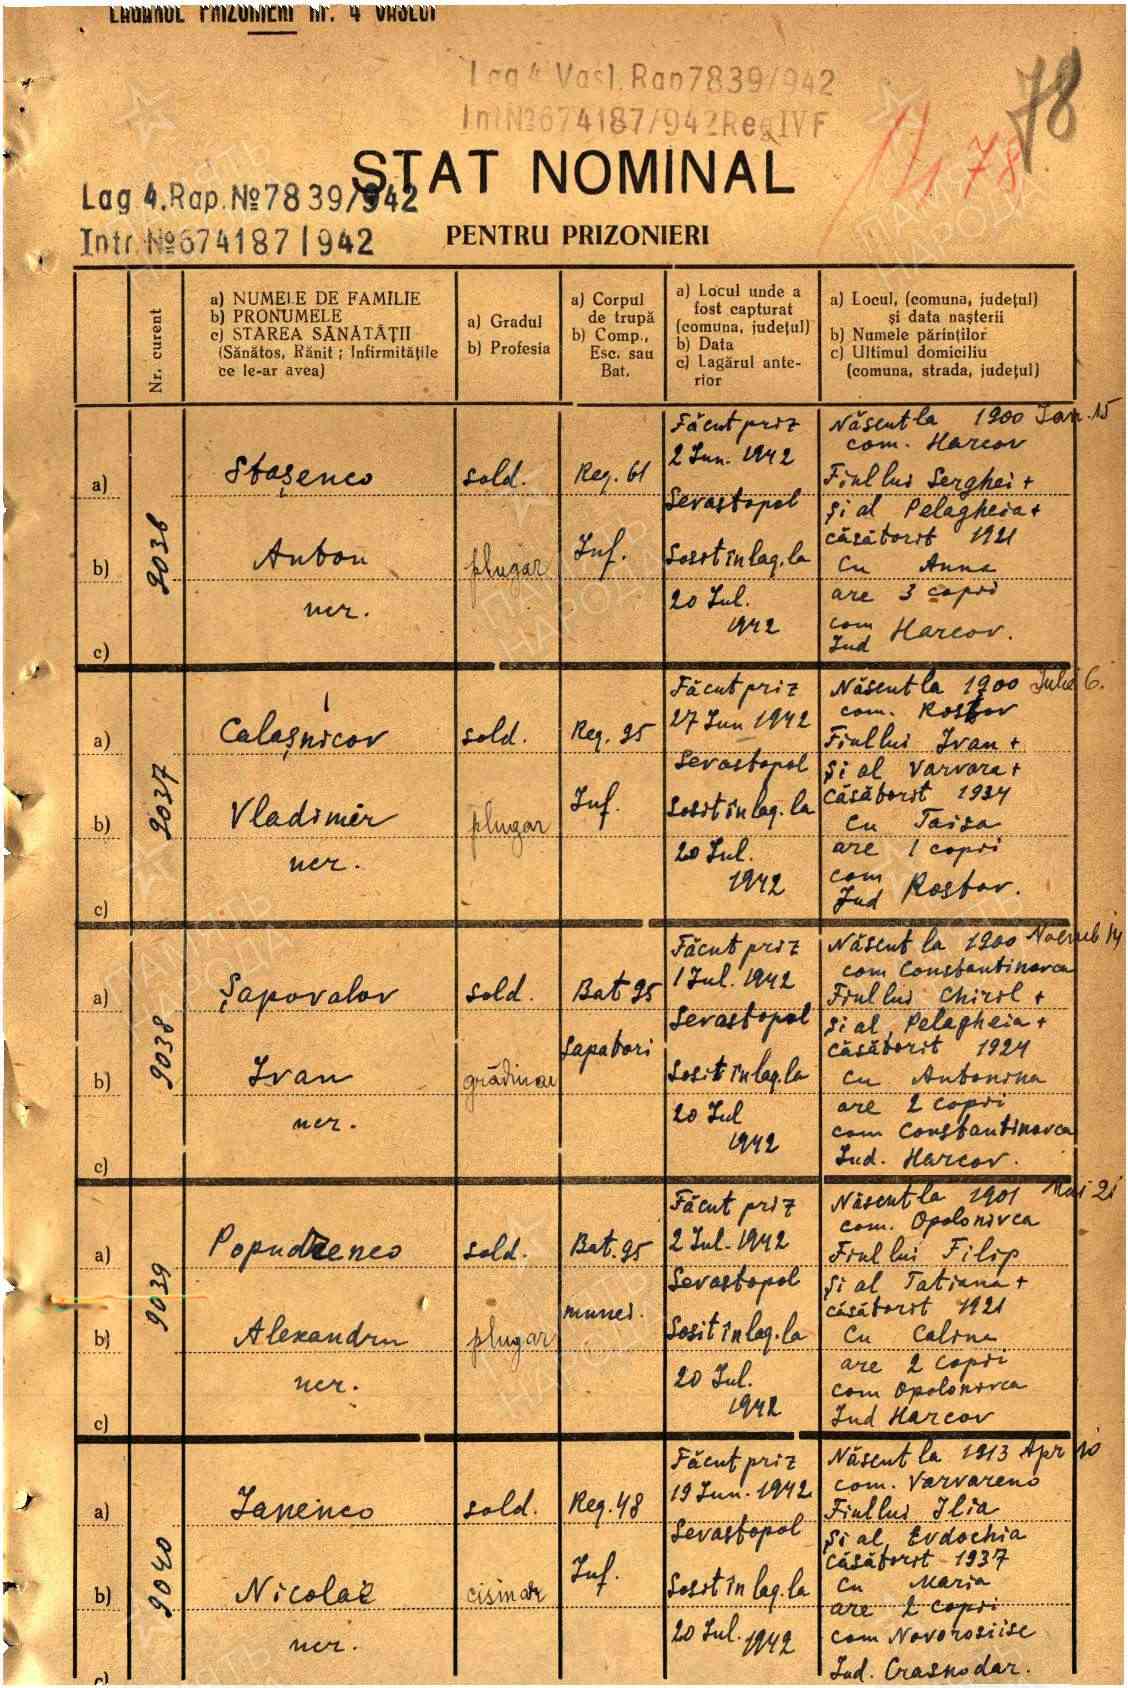 LAGARUL PRIZONIERI Nr. 4 VASLUI
Lag 4 Vasl. Rap 7839/942
Int№674187/942 Reg IV F
78
1/1 78
STAT NOMINAL
Lag 4. Rap. №7839/942
PENTRU PRIZONIERI
Intr. №674187/942
Nr. curent
a) NUMELE DE FAMILIE
b) PRONUMELE
c) STAREA SĂNĂTĂȚII
(Sănătos, Rănit; Infirmitățile
ce le-ar avea)
a) Gradul
b) Profesia
a) Corpul
de trupă
b) Comp.,
Esc. sau
Bat.
a) Locul unde a
fost capturat
(comuna, județul)
b) Data
c) Lagărul ante-
rior
a) Locul, (comuna, județul)
și data nașterii
b) Numele părinților
c) Ultimul domiciliu
(comuna, strada, județul)
9036
a)
b)
c)
Stașenco
Anton
ner.
sold.
plugar
Reg. 61
Inf.
Făcut priz
2 Iun. 1942
Sevastopol
Sosit în lag. la
20 Iul.
1942
Născut la 1900 Ian. 15
com. Harcov
Fiul lui Serghei +
și al Pelagheia +
căsătorit 1921
cu Anna
are 3 copri
com
Jud Harcov.
9037
a)
b)
c)
Calașnicov
Vladimir
ner.
sold.
plugar
Reg. 95
Inf.
Făcut priz
27 Iun 1942
Sevastopol
Sosit în lag. la
20 Iul.
1942
Născut la 1900 Iulie 6.
com. Rostov
Fiul lui Ivan +
și al Varvara +
căsătorit 1934
cu Taisa
are 1 copri
com
Jud Rostov.
9038
a)
b)
c)
Șapovalov
Ivan
ner.
sold.
grădinar
Bat 95
Sapatori
Făcut priz
1 Iul. 1942
Sevastopol
Sosit în lag. la
20 Iul
1942
Născut la 1900 Noemb 14
com Constantinovca
Fiul lui Chiril +
și al Pelagheia +
căsătorit 1924
cu Antonina
are 2 copri
com Constantinovca
Jud. Harcov.
9039
a)
b)
c)
Popudrenco
Alexandru
ner.
sold.
plugar
Bat. 95
munci.
Făcut priz
2 Iul. 1942
Sevastopol
Sosit în lag. la
20 Iul.
1942
Născut la 1901 Mai 21
com. Opolonivca
Fiul lui Filip
și al Tatiana +
căsătorit 1921
cu Calina
are 2 copri
com Opolonivca
Jud Harcov
9040
a)
b)
c)
Ianenco
Nicolae
ner.
sold.
cismar
Reg. 48
Inf.
Făcut priz
19 Iun. 1942
Sevastopol
Sosit în lag. la
20 Iul. 1942
Născut la 1913 Apr 10
com. Varvareno
Fiul lui Ilia
și al Evdochia
căsătorit 1937
cu Maria
are 2 copri
com Novorosiise
Jud. Crasnodar.
ПАМЯТЬ
НАРОДА